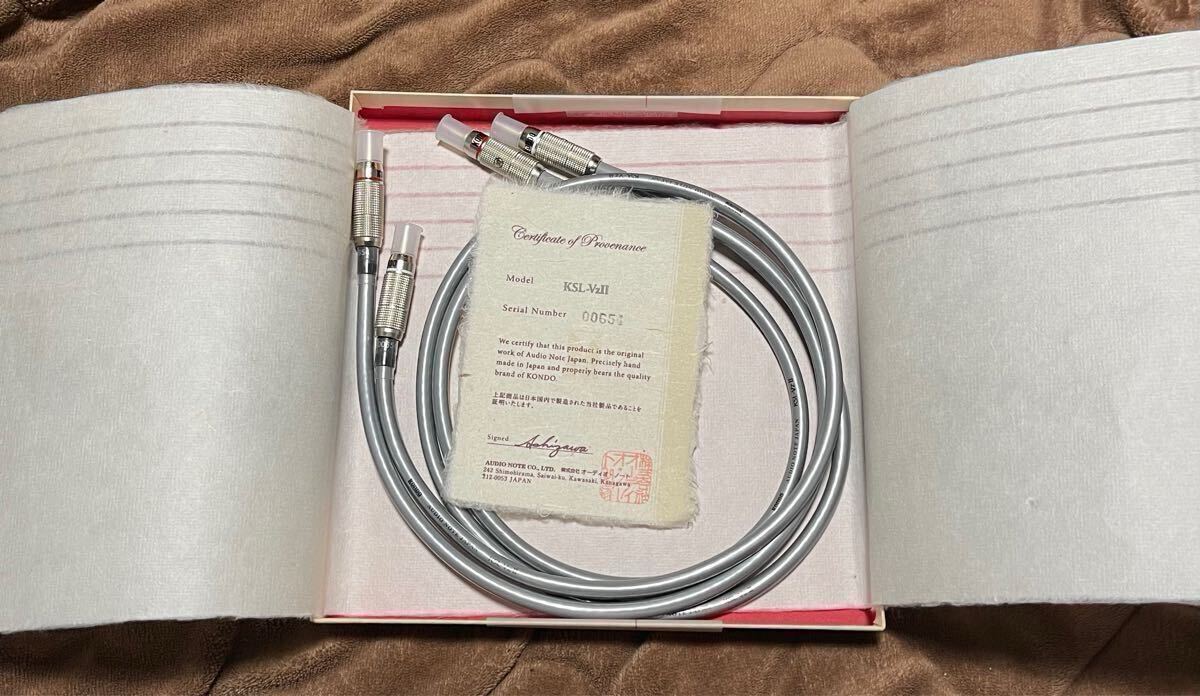 Certificate of Provenance
Model KSL-VzII
Serial Number 00651
We certify that this product is the original
work of Audio Note Japan. Precisely hand
made in Japan and properly bears the quality
brand of KONDO.
上記商品は日本国内で製造された当社製品であることを
証明いたします。
Signed Ashizawa
AUDIO NOTE CO., LTD. 株式会社 オーディオ・ノート
242 Shimohirama, Saiwai-ku, Kawasaki, Kanagawa
212-0053 JAPAN
KONDO AUDIO NOTE JAPAN KSL-VzII
KONDO AUDIO NOTE JAPAN